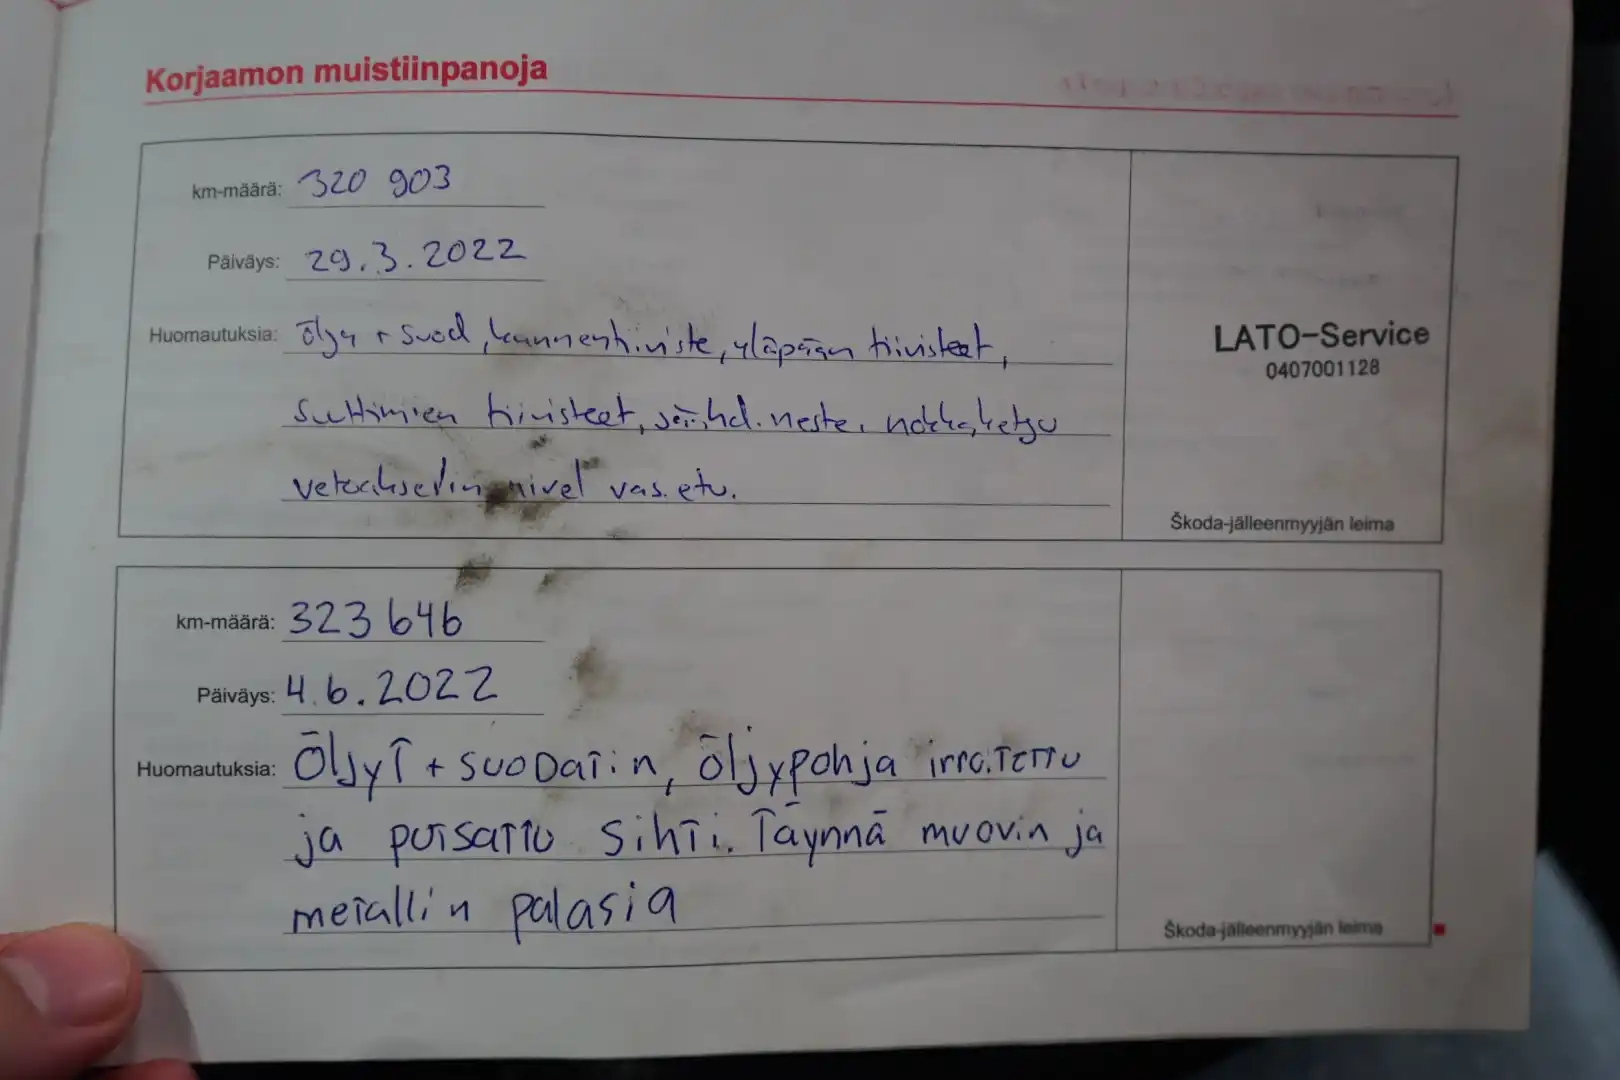 Korjaamon muistiinpanoja
km-määrä: 320 903
Päiväys: 29.3.2022
Huomautuksia: öljy + suod, kannentiiviste, yläpään tiivisteet,
suttimien tiivisteet, jäähd. neste, nokkaketju
vetoakselin nivel vas. etu.
LATO-Service
0407001128
Škoda-jälleenmyyjän leima
km-määrä: 323 646
Päiväys: 4.6.2022
Huomautuksia: Öljyt + suodatin, öljypohja irroitettu
ja putsattu sihti. Täynnä muovin ja
metallin palasia
Škoda-jälleenmyyjän leima